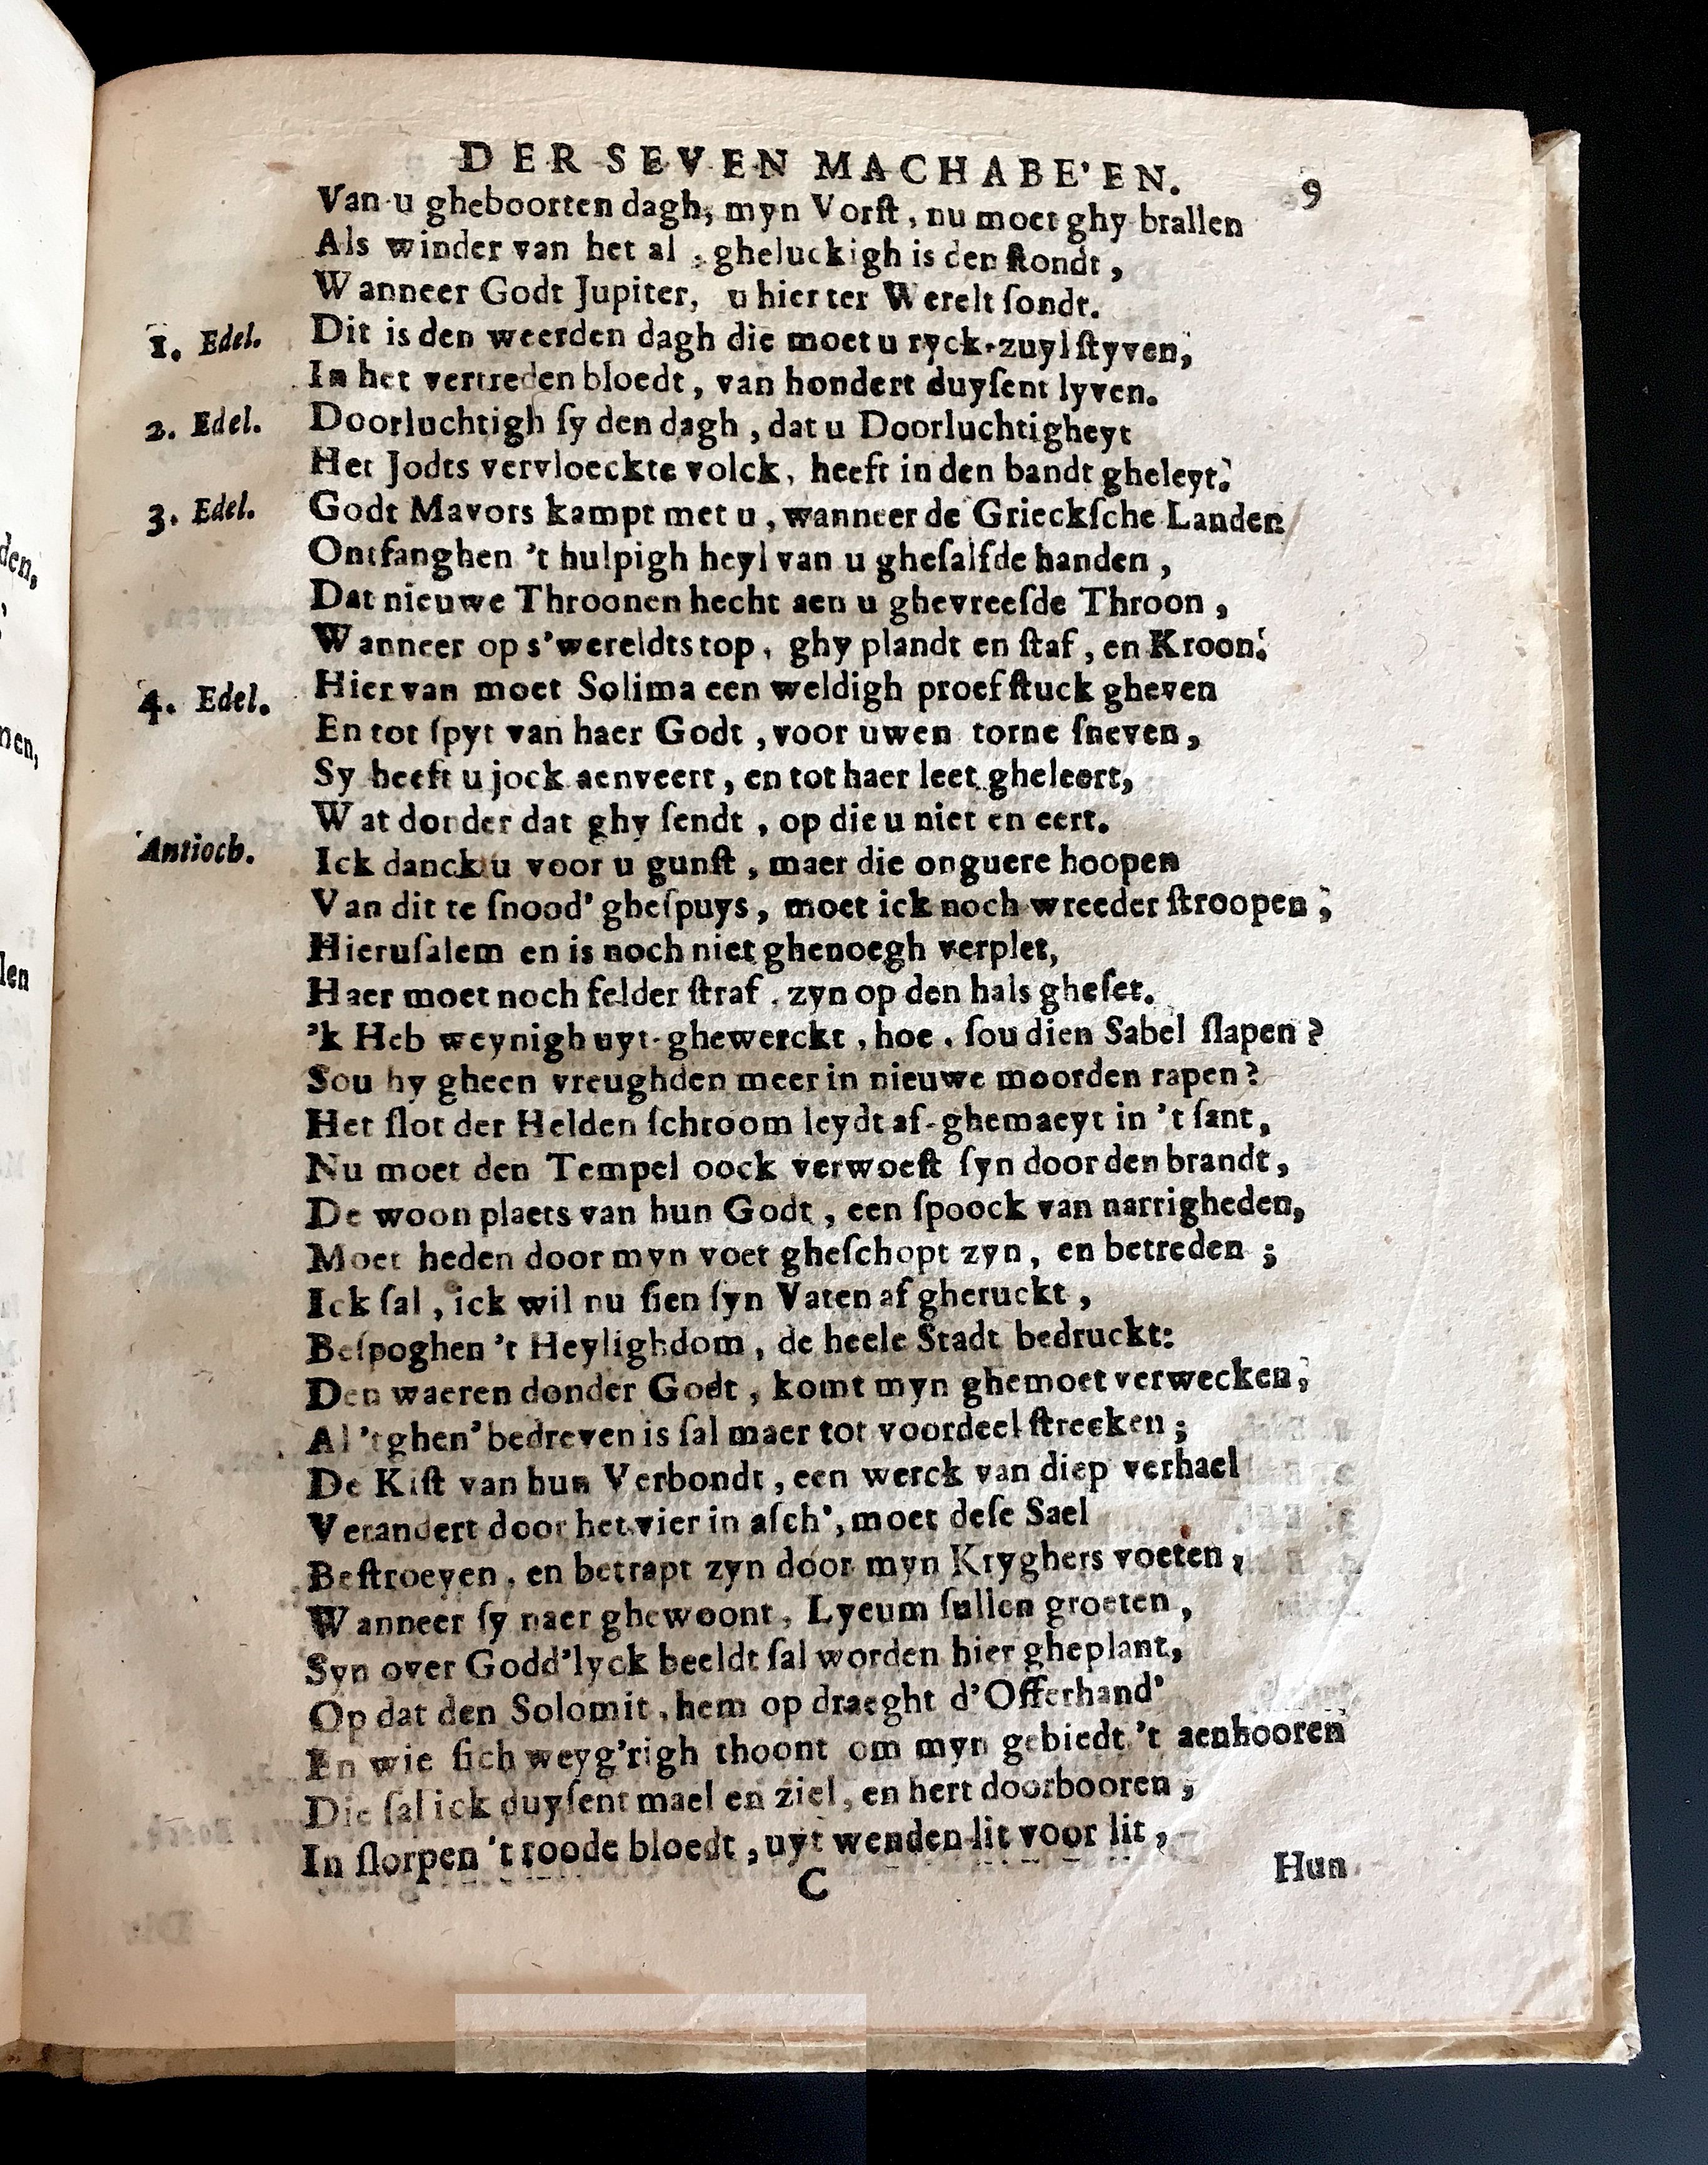 DER SEVEN MACHABE'EN. 9
Van u gheboorten dagh, myn Vorſt, nu moet ghy brallen
Als winder van het al, gheluckigh is den ſtondt,
Wanneer Godt Jupiter, u hier ter Werelt ſondt.
1. Edel. Dit is den weerden dagh die moet u ryck-zuyl ſtyven,
In het vertreden bloedt, van hondert duyſent lyven.
2. Edel. Doorluchtigh ſy den dagh, dat u Doorluchtigheyt
Het Jodts vervloeckte volck, heeft in den bandt gheleyt.
3. Edel. Godt Mavors kampt met u, wanneer de Grieckſche Landen
Ontfanghen 't hulpigh heyl van u gheſalfde handen,
Dat nieuwe Throonen hecht aen u ghevreeſde Throon,
Wanneer op s'wereldts top, ghy plandt en ſtaf, en Kroon.
4. Edel. Hier van moet Solima een weldigh proefſtuck gheven
En tot ſpyt van haer Godt, voor uwen torne ſneven,
Sy heeft u jock aenveert, en tot haer leet gheleert,
Wat donder dat ghy ſendt, op die u niet en eert.
Antioch. Ick danck u voor u gunſt, maer die onguere hoopen
Van dit te ſnood' gheſpuys, moet ick noch wreeder ſtroopen;
Hieruſalem en is noch niet ghenoegh verplet,
Haer moet noch felder ſtraf, zyn op den hals gheſet.
'k Heb weynigh uyt-ghewerckt, hoe, ſou dien Sabel ſlapen?
Sou hy gheen vreughden meer in nieuwe moorden rapen?
Het ſlot der Helden ſchroom leydt af-ghemaeyt in 't ſant,
Nu moet den Tempel oock verwoeſt ſyn door den brandt,
De woon plaets van hun Godt, een ſpoock van narrigheden,
Moet heden door myn voet gheſchopt zyn, en betreden;
Ick ſal, ick wil nu ſien ſyn Vaten af gheruckt,
Beſpoghen 't Heylighdom, de heele Stadt bedruckt:
Den waeren donder Godt, komt myn ghemoet verwecken,
Al 'tghen' bedreven is ſal maer tot voordeel ſtrecken;
De Kiſt van hun Verbondt, een werck van diep verhael
Verandert door het vier in aſch', moet deſe Sael
Beſtroeyen, en betrapt zyn door myn Kryghers voeten,
Wanneer ſy naer ghewoont, Lyeum ſullen groeten,
Syn over Godd'lyck beeldt ſal worden hier gheplant,
Op dat den Solomit, hem op draeght d'Offerhand'
En wie ſich weyg'righ thoont om myn gebiedt 't aenhooren
Die ſal ick duyſent mael en ziel, en hert doorbooren;
In ſlorpen 't roode bloedt, uyt wenden lit voor lit,
C Hun
den,
nen,
len